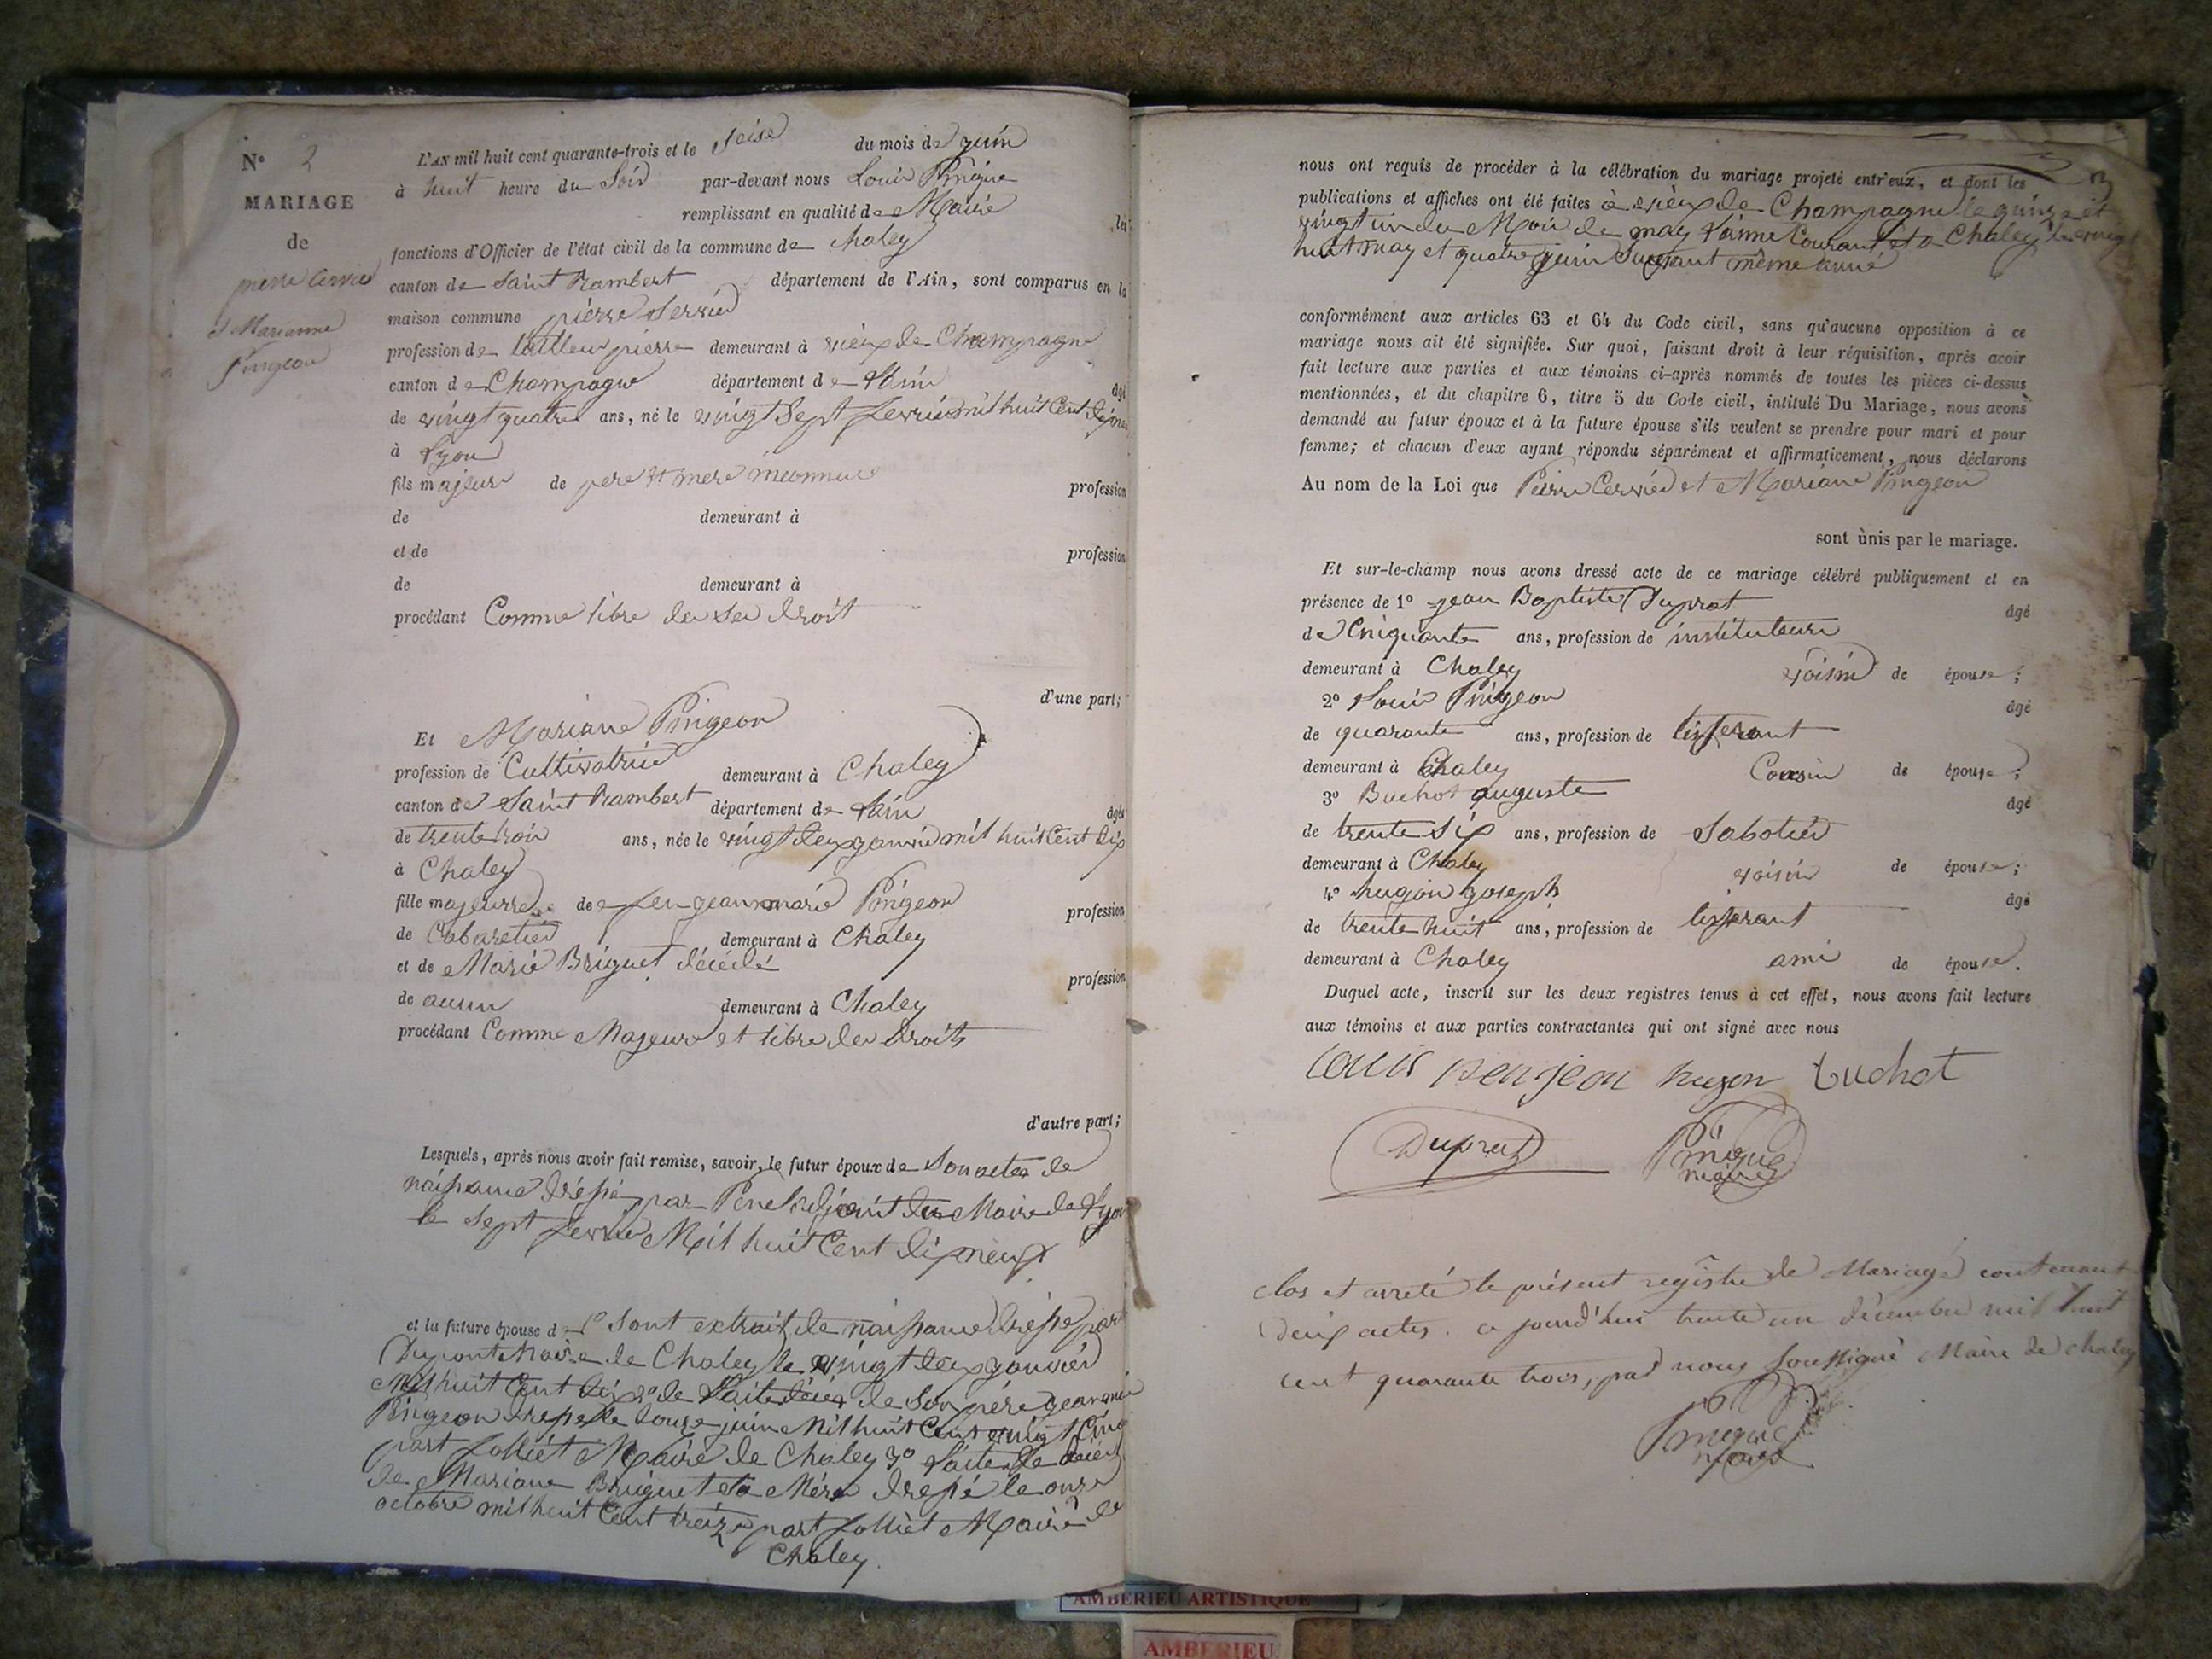 N° 2
MARIAGE
de
pierre Cervié
& Marianne
Pingeon
L'AN mil huit cent quarante-trois et le seise du mois de juin
à huit heure du Soir par-devant nous Louis Pingue
remplissant en qualité de Maire les
fonctions d'Officier de l'état civil de la commune de Chaley
canton de Saint Rambert département de l'Ain, sont comparus en la
maison commune pierre Servié
profession de tailleur pierre demeurant à vieux de Champagne
canton de Champagne département de l'ain âgé
de vingt quatre ans, né le vingt Sept fevrié mil huit Cent dixneuf
à Lyon
fils majeure de pere et mere inconnue profession
de demeurant à
et de profession
de demeurant à
procédant Comme libre de se droit
d'une part;
Et Mariane Pingeon
profession de Cultivatrice demeurant à Chaley
canton de Saint Rambert département de l'ain âgée
de trente trois ans, née le vingt deux janvié mil huit Cent dix
à Chaley
fille majeurre de feu jean marie Pingeon profession
de Cabaretier demeurant à Chaley
et de Marie Briguet décédé profession
de aucun demeurant à Chaley
procédant Comme Majeure et libre de droits
d'autre part;
Lesquels, après nous avoir fait remise, savoir, le futur époux de Son actes de
naissance dréssé par adjoint du Maire de Lyon
le sept fevrier Mil huit Cent dixneuf
et la future épouse d 1° Sont extrait de naissance dréssé part
Dupont Maire de Chaley le vingt deux janvier
Mil huit Cent dix 2° de l'acte décé de Son pére jean marie
Pingeon dressé le douze juin Mil huit Cent vingt Cinq
part Jolliét Maire de Chaley 3° l'acte de décé
de Mariane Briguet sa Mére dressé le onze
octobre mil huit Cent treize part Jolliét Maire de
Chaley.
nous ont requis de procéder à la célébration du mariage projeté entr'eux, et dont les
publications et affiches ont été faites à vieux de Champagne le quinze et
vingt un du Mois de may l'anne Courant et a Chaley le vingt
huit may et quatre juin Suivant même anné
conformément aux articles 63 et 64 du Code civil, sans qu'aucune opposition à ce
mariage nous ait été signifiée. Sur quoi, faisant droit à leur réquisition, après avoir
fait lecture aux parties et aux témoins ci-après nommés de toutes les pièces ci-dessus
mentionnées, et du chapitre 6, titre 5 du Code civil, intitulé Du Mariage, nous avons
demandé au futur époux et à la future épouse s'ils veulent se prendre pour mari et pour
femme; et chacun d'eux ayant répondu séparément et affirmativement, nous déclarons
Au nom de la Loi que Peirre Cervié et Mariane Pingeon
sont ùnis par le mariage.
Et sur-le-champ nous avons dressé acte de ce mariage célébré publiquement et en
présence de 1° jean Baptiste Duprat âgé
de Cinquante ans, profession de instituteure
demeurant à Chaley voisin de épouse;
2° Louis Pingeon âgé
de quarante ans, profession de tisserant
demeurant à Chaley Cousin de épouse;
3° Buchot auguste âgé
de trente Six ans, profession de Sabotier
demeurant à Chaley voisin de épouse;
4° hugon joseph âgé
de trente huit ans, profession de tisserant
demeurant à Chaley ami de épouse.
Duquel acte, inscrit sur les deux registres tenus à cet effet, nous avons fait lecture
aux témoins et aux parties contractantes qui ont signé avec nous
Louis penjeon hugon buchot
Duprat Pingue
maire
clos et arreté le présent registre de Mariage contenant
deux actes. a jourd'hui trente un décembre mil huit
cent quarante trois, par nous soussigné Maire de chaley
Pingue
maire
AMBERIEU ARTISTIQUE
AMBERIEU